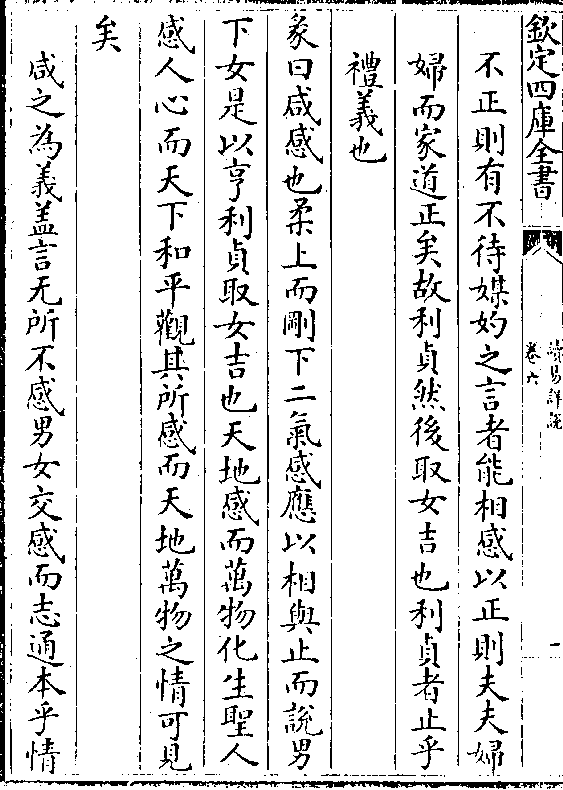 欽定四庫全書
讀易詳説
卷六
一
不正則有不待媒妁之言者能相感以正則夫夫婦
婦而家道正矣故利貞然後取女吉也利貞者止乎
禮義也
彖曰咸感也柔上而剛下二氣感應以相與止而說男
下女是以亨利貞取女吉也天地感而萬物化生聖人
感人心而天下和平觀其所感而天地萬物之情可見
矣
咸之為義葢言无所不感男女交感而志通本乎情